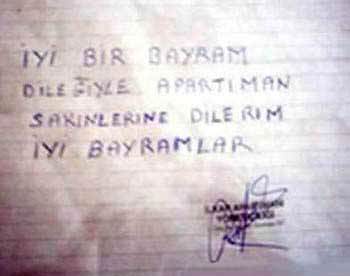 İYİ BİR BAYRAM
DİLEĞİYLE APARTIMAN
SAKİNLERİNE DİLERİM
İYİ BAYRAMLAR